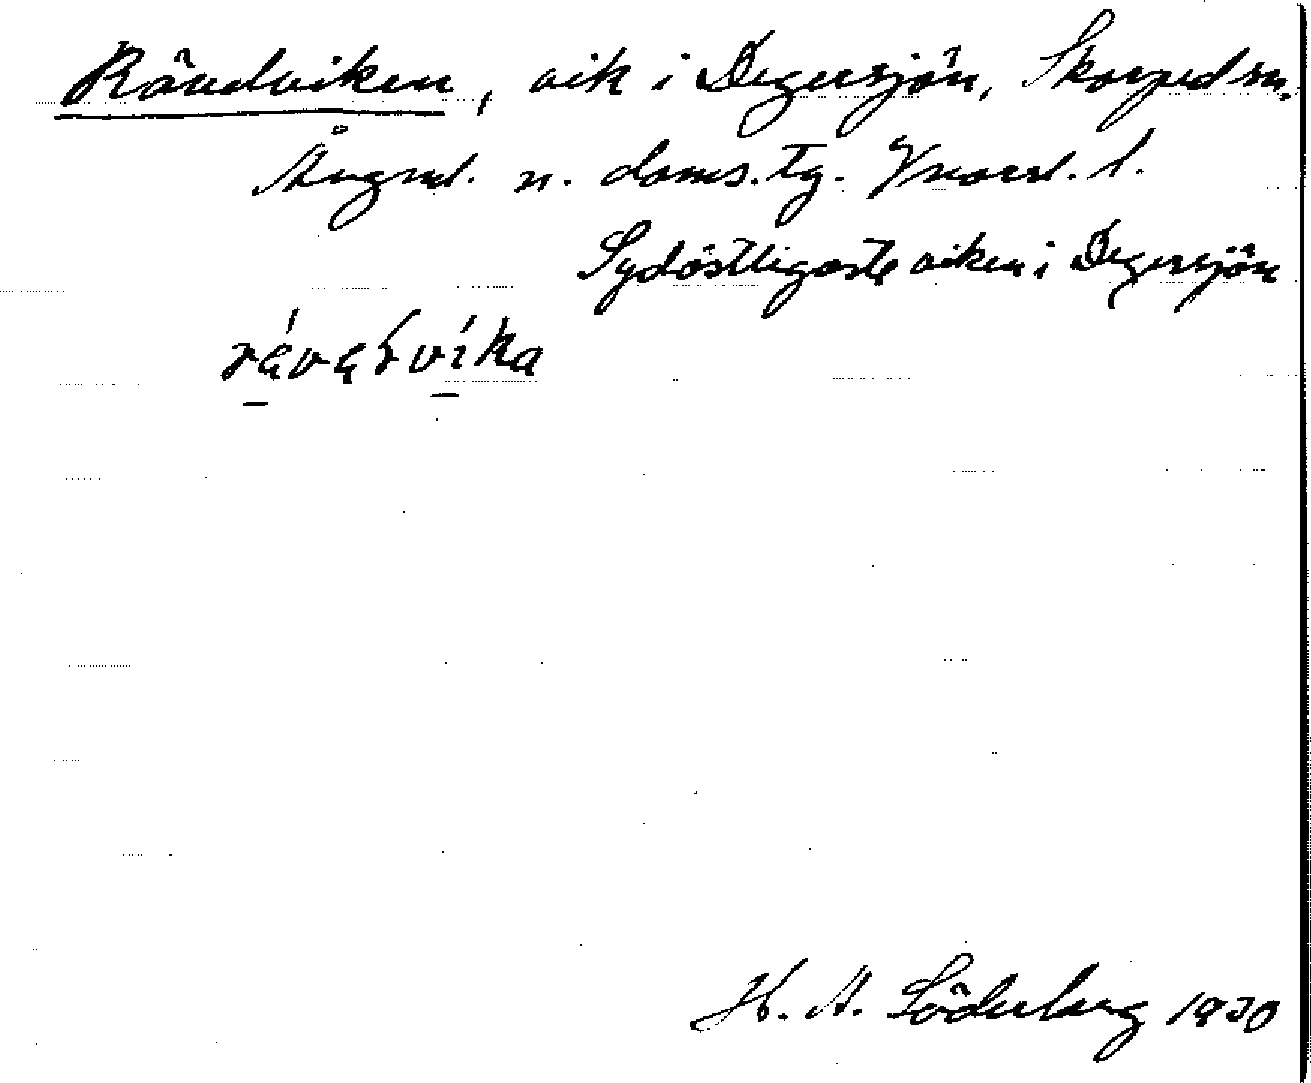 Rändviken, vik i Degersjön, Skorped sn.
Ångml. n. doms. tg. Vnorrl. l.
Sydöstligaste viken i Degersjön
H. A. Söderberg 1930